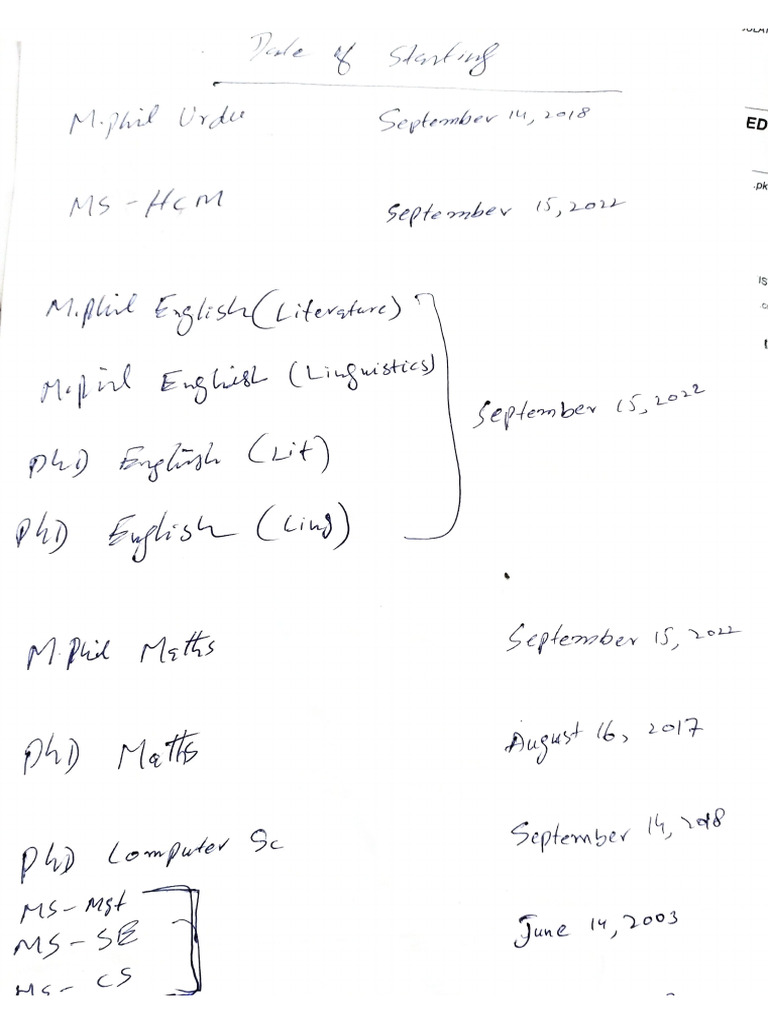 Date of Starting
M.phil Urdu September 14, 2018
MS - HCM September 15, 2022
M.phil English (Literature)
M.phil English (Linguistics)
September 15, 2022
PhD English (Lit)
PhD English (Ling)
M.Phil Maths September 15, 2022
PhD Maths August 16, 2017
PhD Computer Sc September 14, 2018
MS - Mgt
MS - SE June 14, 2003
MS - CS
ED
.pk
IS